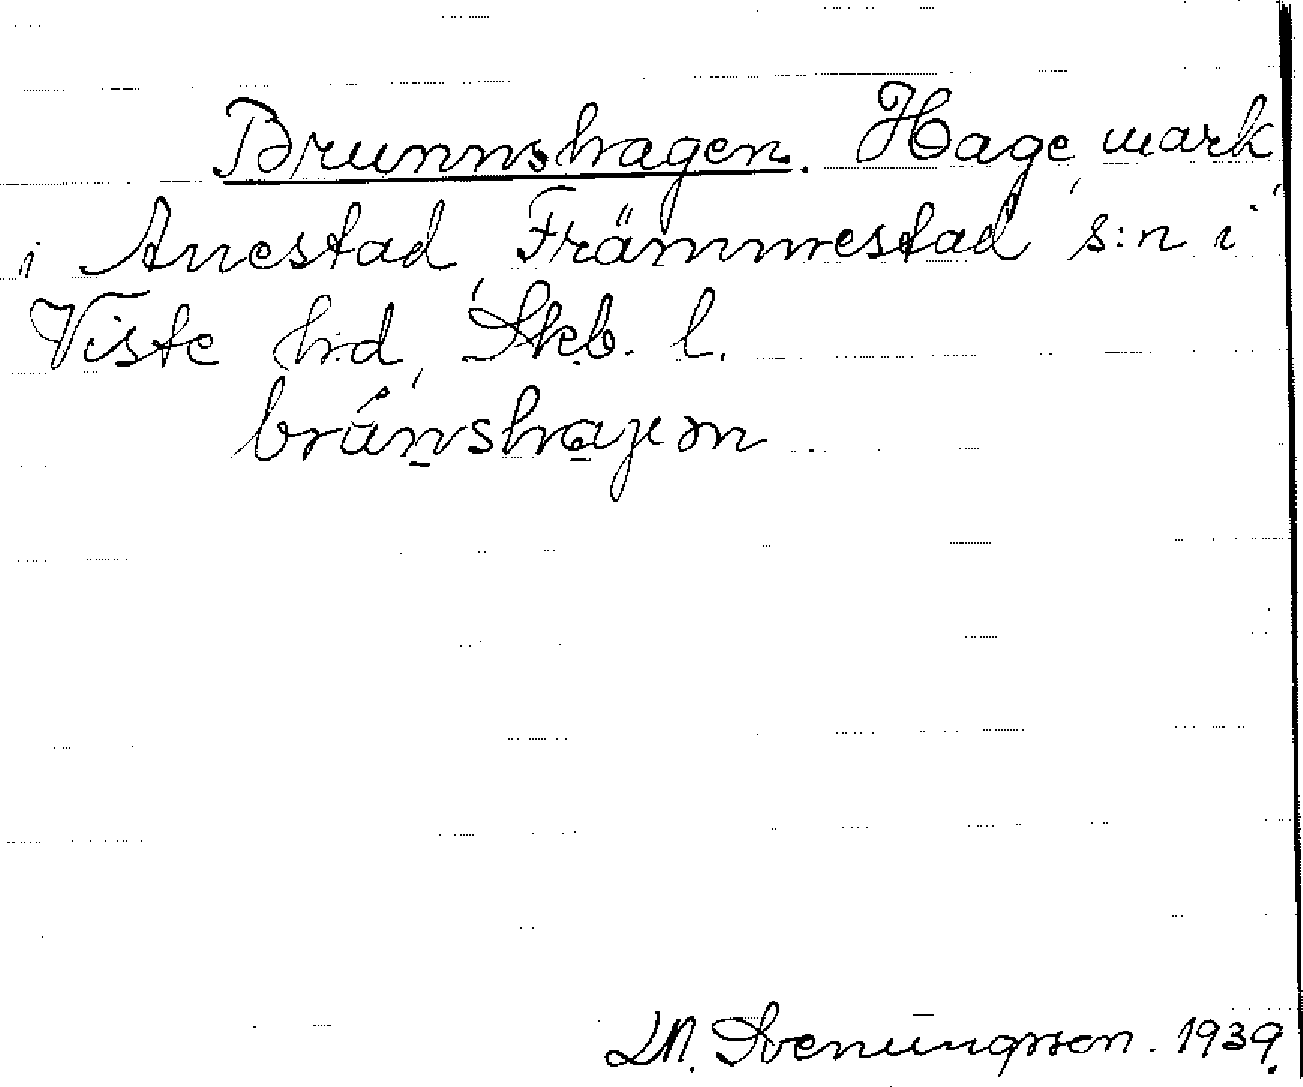 Brunnshagen. Hage, mark,
i Anestad, Främmestad s:n i
Viste hd, Skb. l.
brúnshajen
M. Svenungsson. 1939.